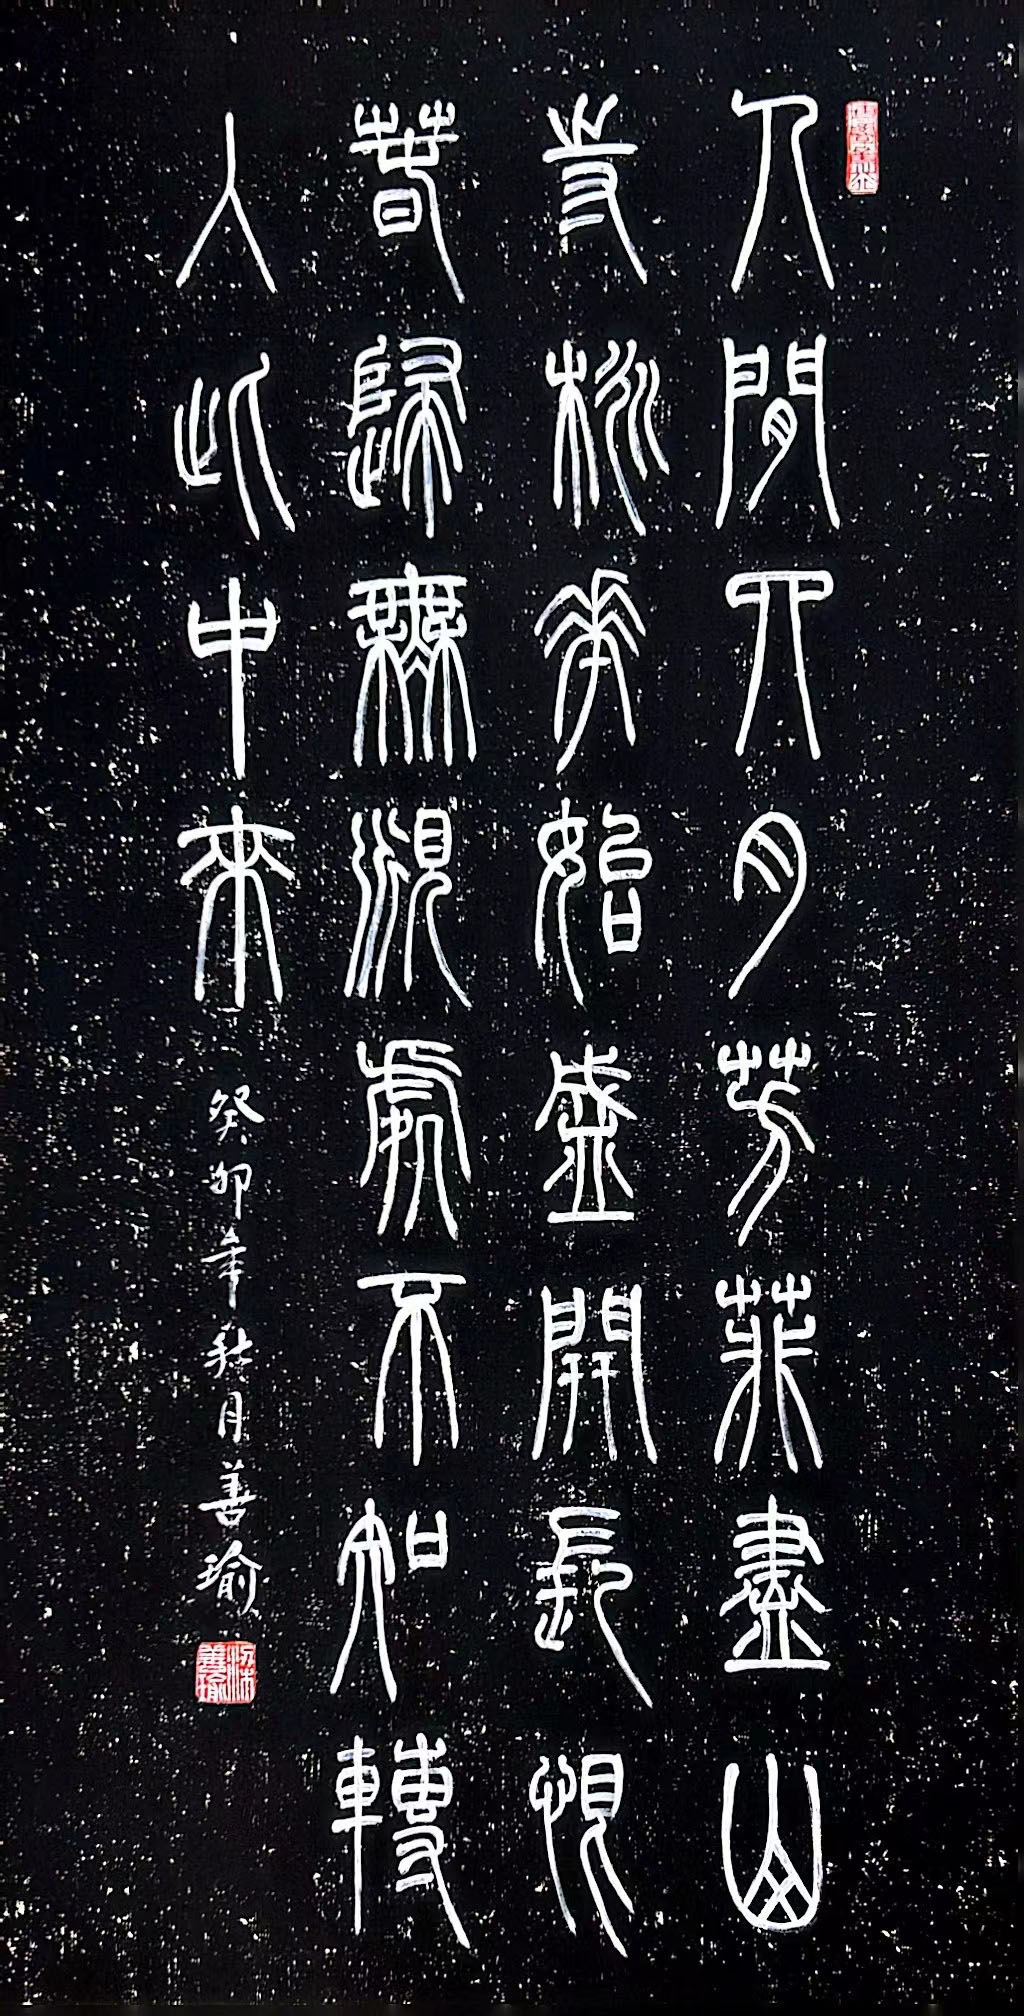 人間四月芳菲盡山
寺桃花始盛開長恨
春歸無覓處不知轉
入此中來
癸卯年秋月善瑜